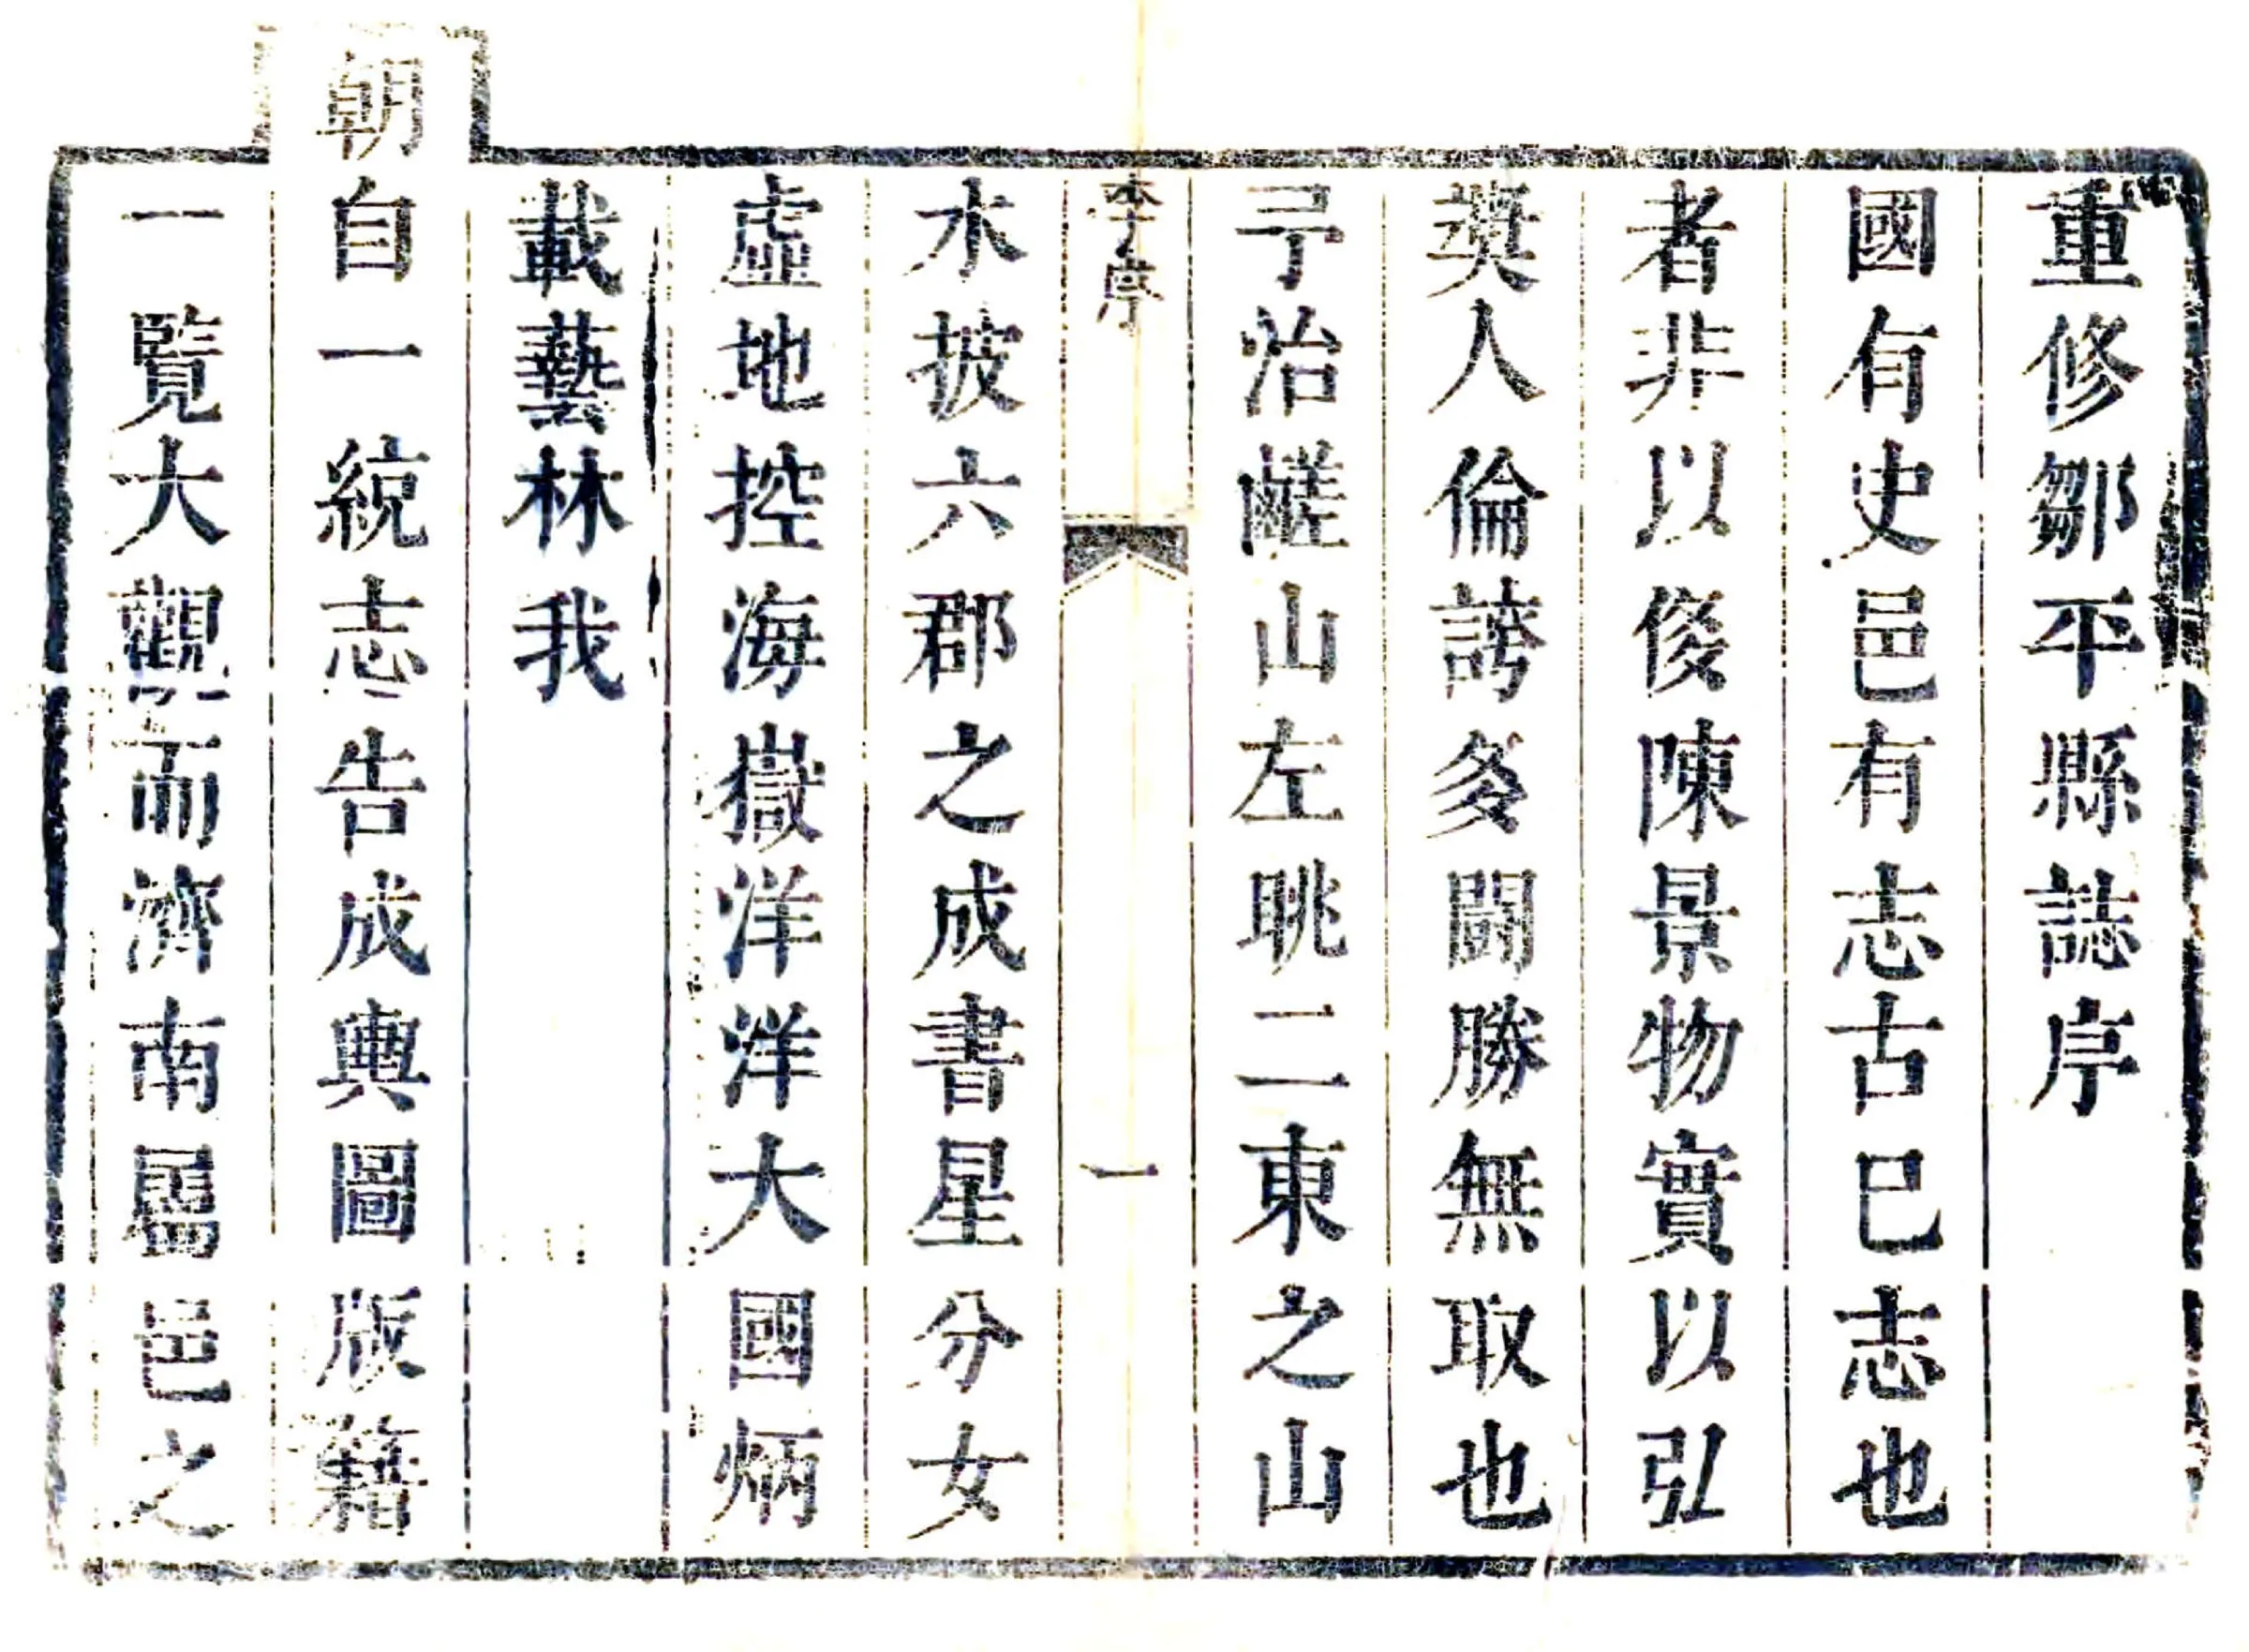 重修鄒平縣誌序
國有史邑有志古巳志也
者非以俊陳景物實以弘
奬人倫誇多鬪勝無取也
予治鹺山左眺二東之山
李序 一
水披六郡之成書星分女
虛地控海嶽洋洋大國炳
載藝林我
朝自一統志告成輿圖版籍
一覽大觀而濟南屬邑之